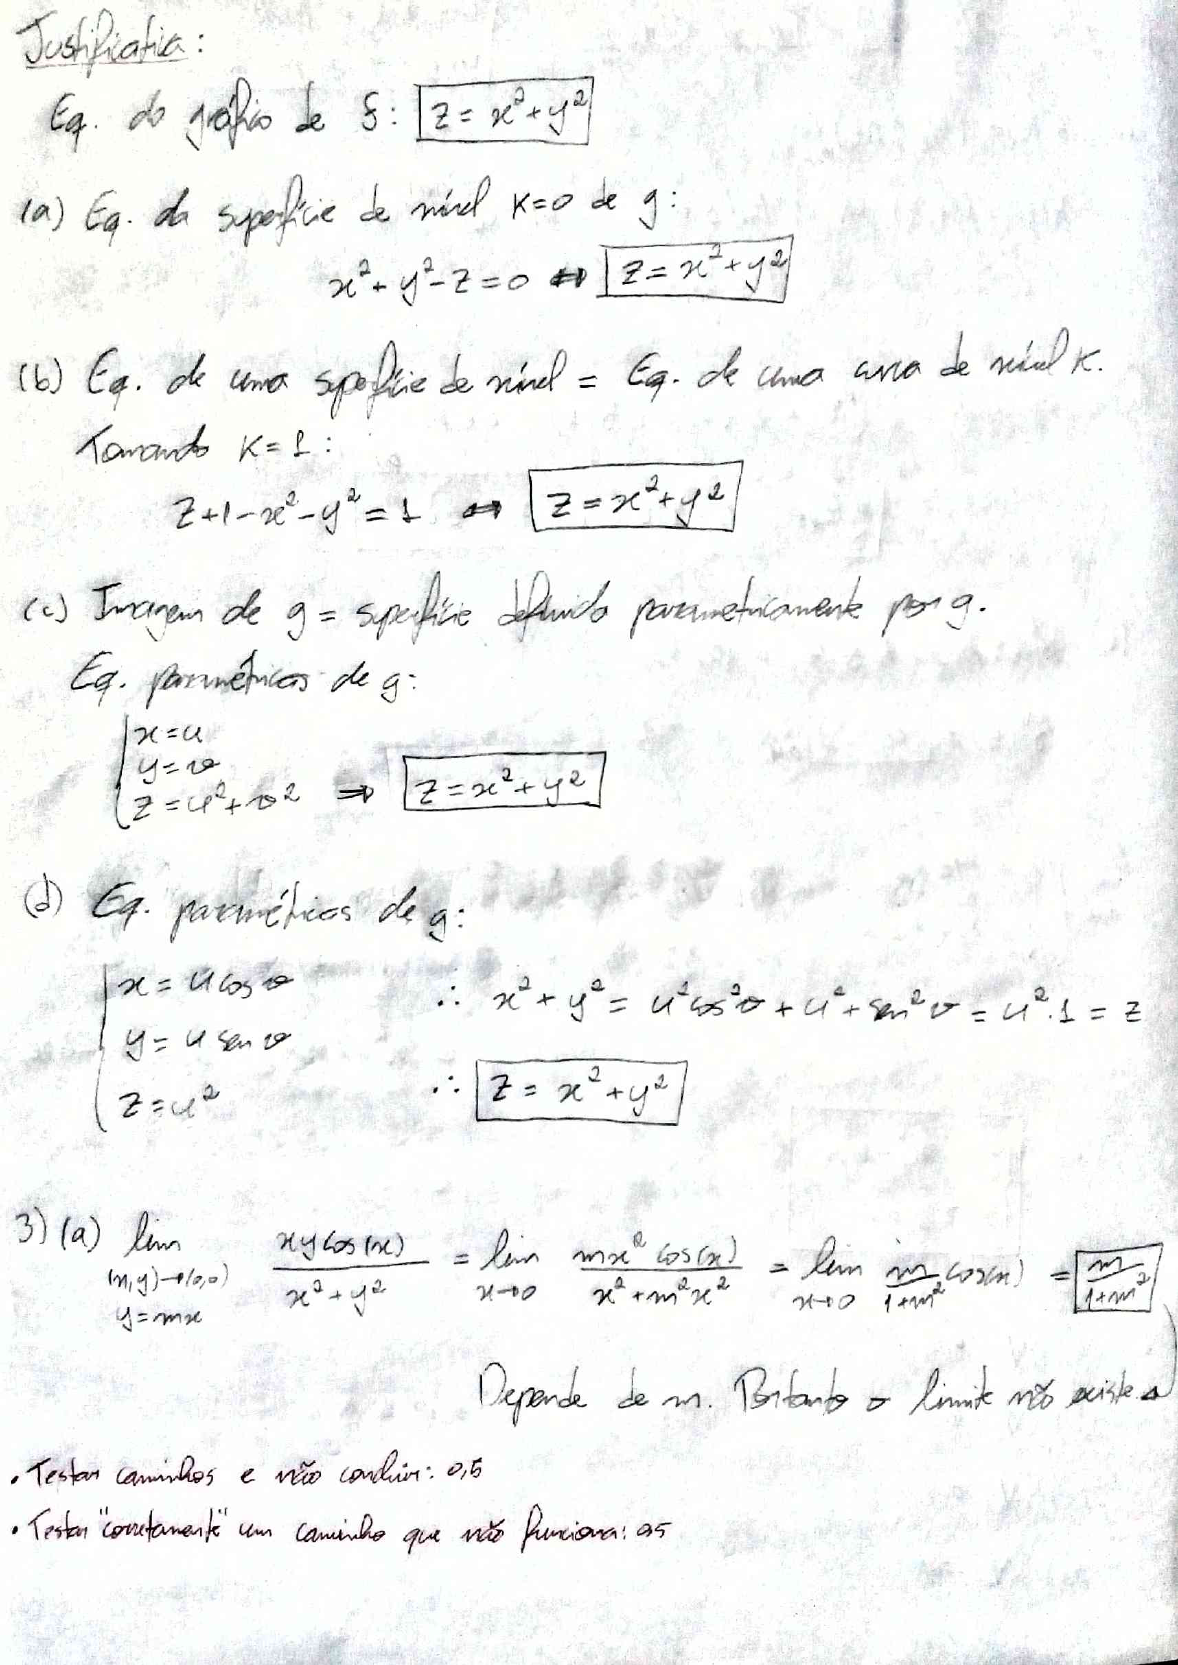 Justificativa:
Eq. do gráfico de f: z = x² + y²
(a) Eq. da superfície de nível K=0 de g:
x² + y² - z = 0 ⇔ z = x² + y²
(b) Eq. de uma superfície de nível = Eq. de uma curva de nível K.
Tomando K = 1:
z+1-x²-y² = 1 ⇔ z = x² + y²
(c) Imagem de g = superfície definida parametricamente por g.
Eq. paramétricas de g:
x = u
y = v
z = u² + v² ⇒ z = x² + y²
(d) Eq. paramétricas de g:
x = u cos v ∴ x² + y² = u² cos² v + u² + sen² v = u².1 = z
y = u sen v
z = u² ∴ z = x² + y²
3) (a) lim xy cos(x) / x² + y² = lim mx² cos(x) / x² + m²x² = lim m / 1+m² cos(x) = m / 1+m²
(x,y)→(0,0) x→0 x→0
y=mx
Depende de m. Portanto o limite não existe.
• Testar caminhos e não concluir: 0,5
• Testar "corretamente" um caminho que não funciona: 0,5